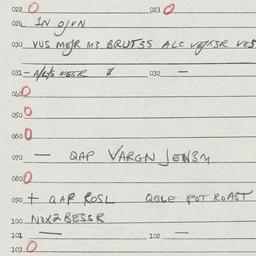 022 0 023 0
024 IN O/VN
030 VUS MEJR M3 BRUT3S ALC VEJK3R VES
031 - A/L/S MESR 032 —
040 0
050 0
060 0
070 — QAP VARGN JEN3M
080 0
090 + QAR ROSL QGLE POT ROAST
100 N3X2BESSR
101 — 102 —
103 0